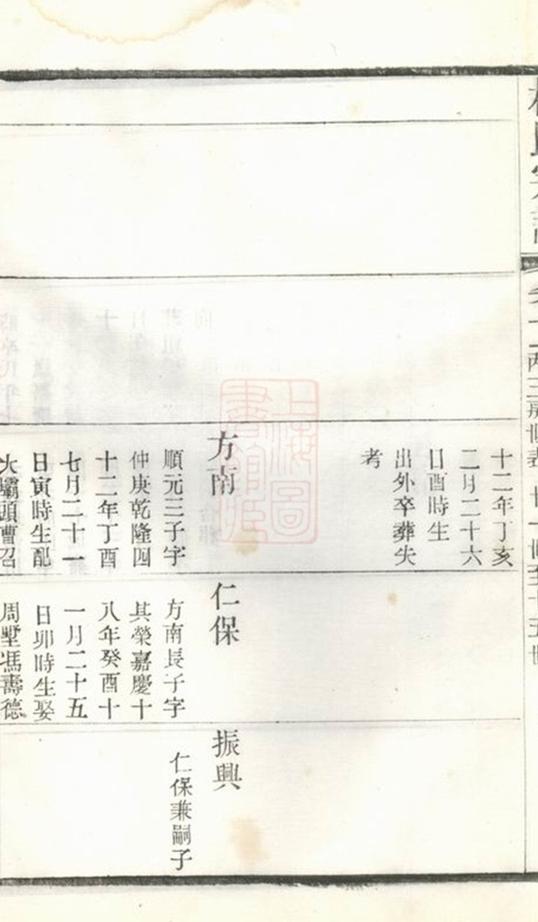 十二年丁亥
二月二十六
日酉時生
出外卒葬失
考
方南
順元三子字
仲庚乾隆四
十二年丁酉
七月二十一
日寅時生配
大壩頭曹召
仁保
方南長子字
其榮嘉慶十
八年癸酉十
一月二十五
日卯時生娶
周墅馮壽德
振興
仁保兼嗣子
上海圖書館藏